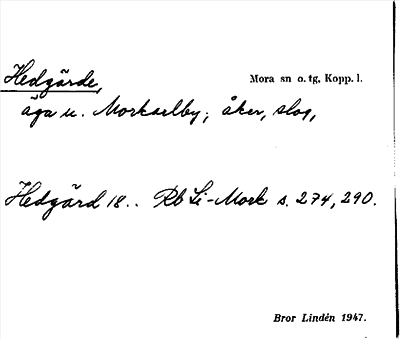 Hedgärde, Mora sn o. tg, Kopp. l.
äga u. Morkarlby; åker, slog,
Hedgärd 18.. Rb Li-Mork s. 274, 290.
Bror Lindén 1947.